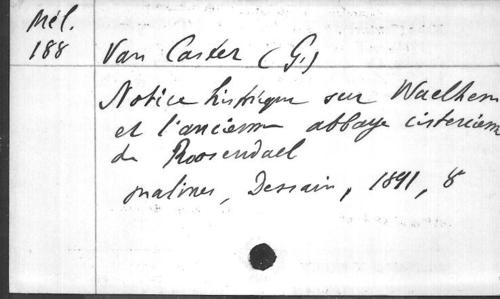 Mél.
188
Van Caster (G.)
Notice historique sur Waelhem
et l'ancienne abbaye cistercienne
de Roosendael
Malines, Dessain, 1891, 8